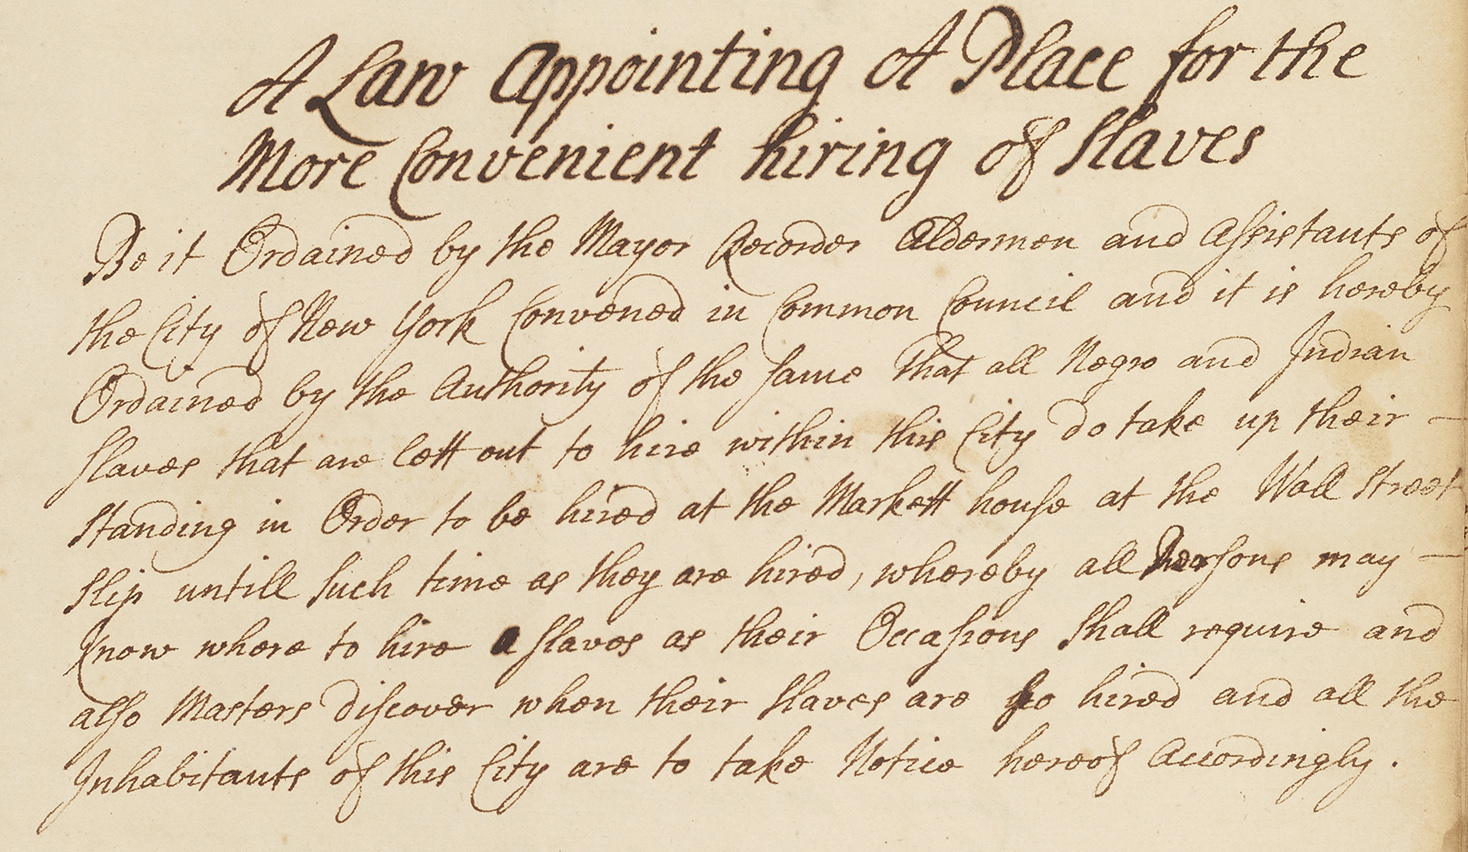 A Law Appointing A Place for the
More Convenient hiring of Slaves
Be it Ordained by the Mayor Recorder Aldermen and Assistants of
the City of New York Convened in Common Council and it is hereby
Ordained by the Authority of the same That all Negro and Indian
slaves that are lett out to hire within this City do take up their
Standing in Order to be hired at the Markett house at the Wall Street
Slip untill Such time as they are hired, whereby all Persons may
know where to hire slaves as their Occasions Shall require and
also Masters discover when their Slaves are so hired and all the
Inhabitants of this City are to take Notice hereof Accordingly.